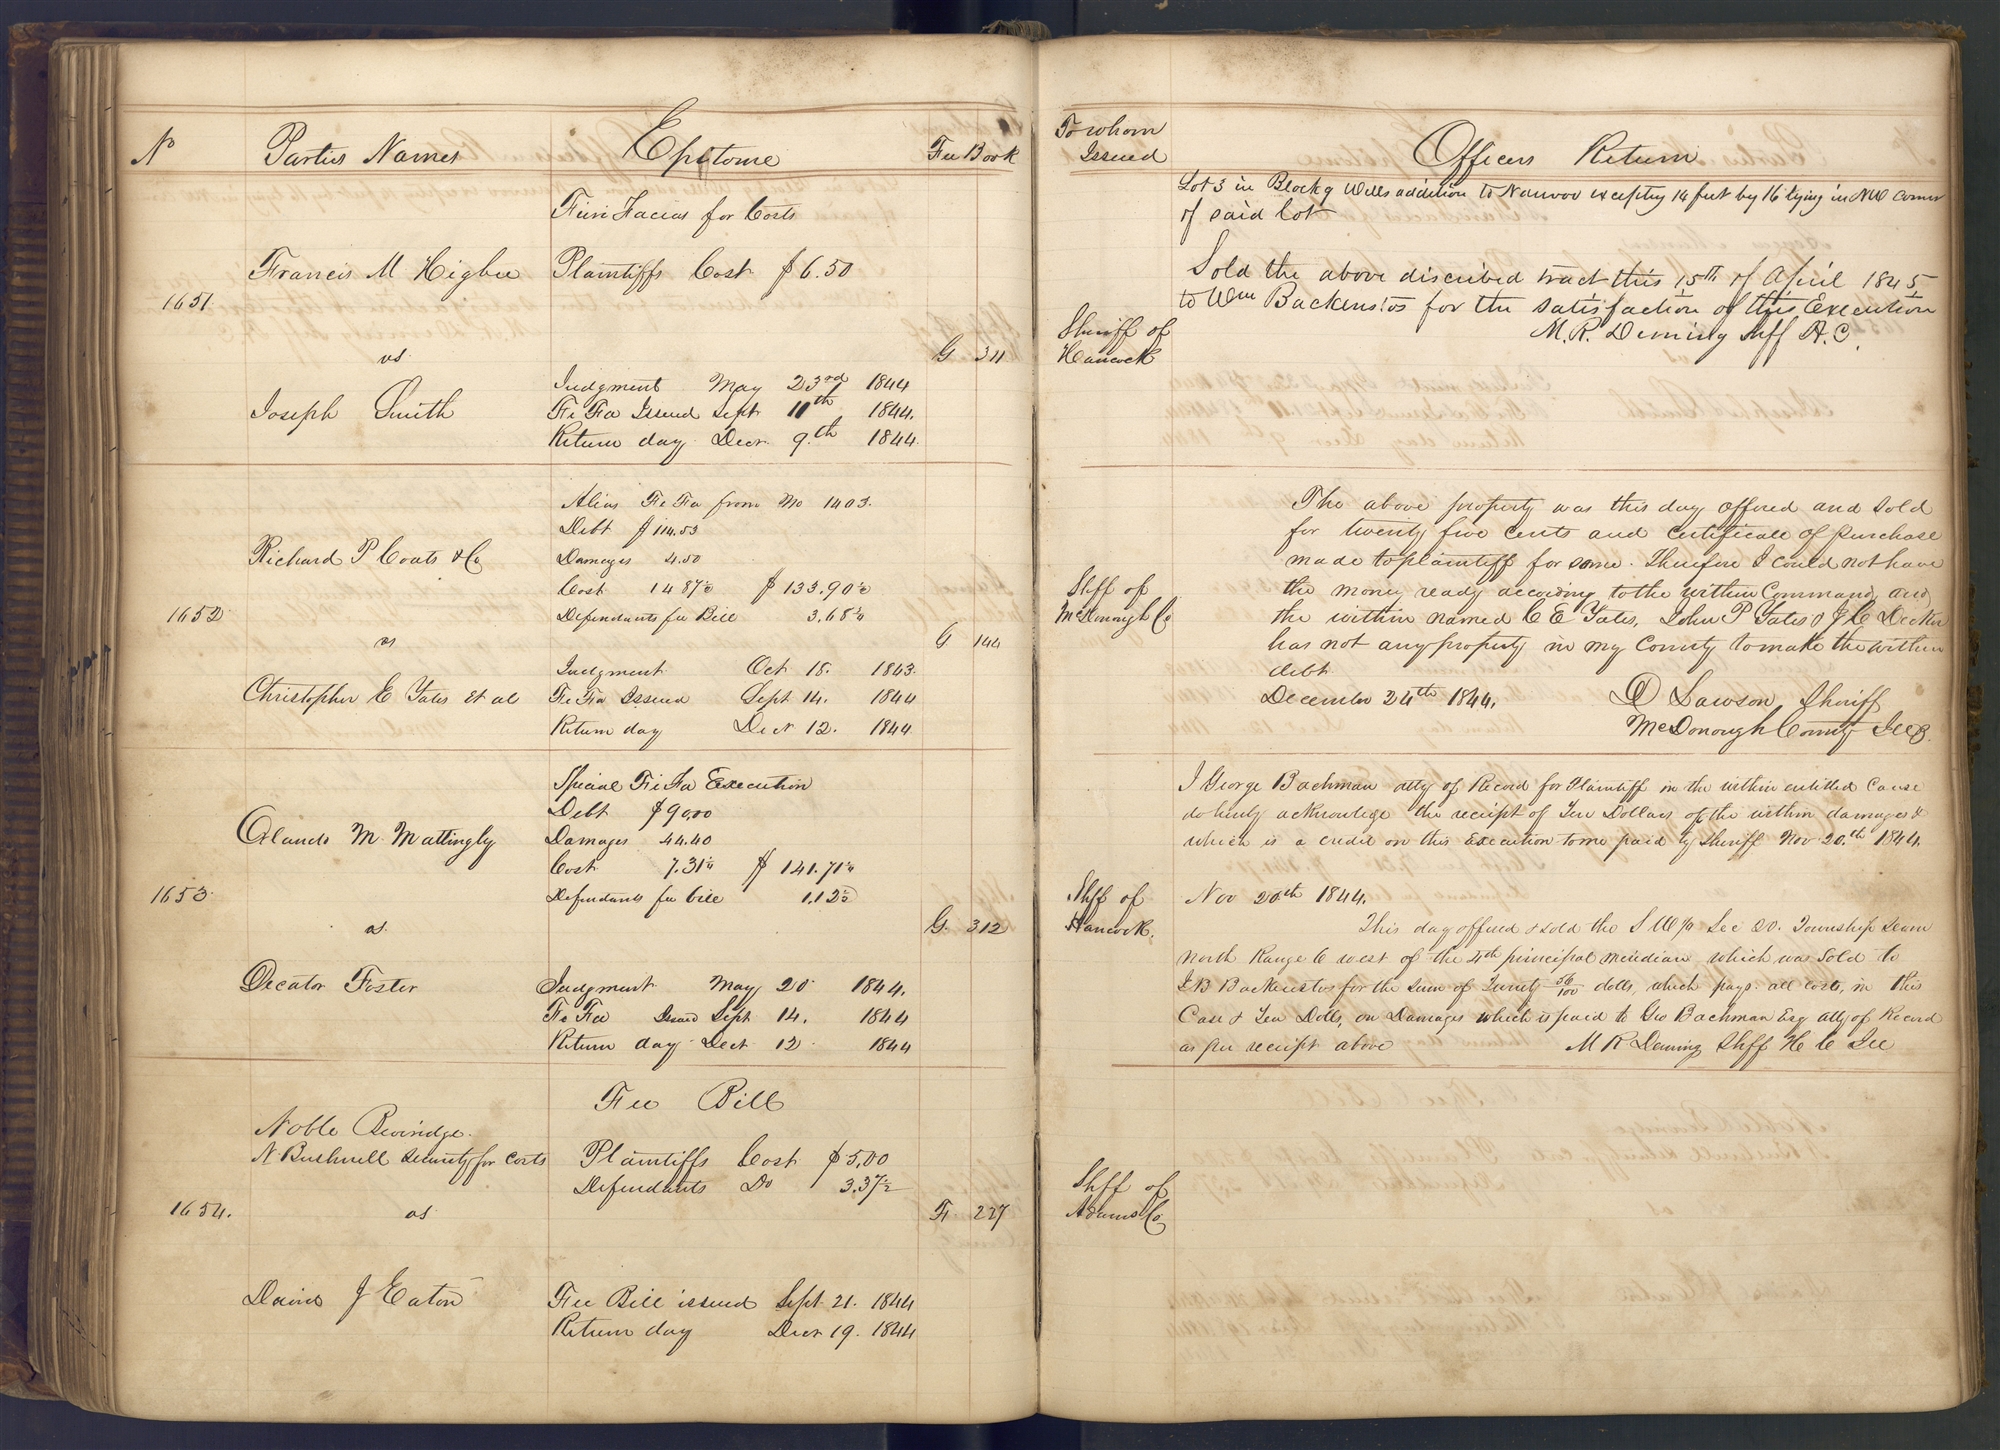 No
Parties Names
Epitome
Fee Book
Fieri Facias for Costs
Francis M Higbee
Plaintiffs Cost $6.50
1651
vs
G 311
Judgment May 23rd 1844
Joseph Smith
Fi Fa Issued Sept 11th 1844.
Return day Decr 9th 1844
Alias Fi Fa from No 1403.
Debt $114.53
Richard P Coats & Co
Damages 4.50
Cost 14 87½ $133.90½
1652
Defendants fee Bill 3.68¾
vs
G 144
Judgment Oct 18. 1843.
Christopher E Yates et al
Fi Fa Issued Sept 14. 1844
Return day Decr 12. 1844
Special Fi Fa Execution
Debt $90,00
Orlando M Mattingly
Damages 44.40
Cost 7.31¼ $141.71¼
1653
Defendants fee bill 1.12½
vs
G. 312
Decator Foster
Judgment May 20 1844.
Fi Fa Issued Sept 14. 1844
Return day Decr 12 1844
Fee Bill
Noble Beviridge.
N. Bushnell security for costs
Plaintiffs Cost $5,00
Defendants Do 3.37½
1654.
vs
F. 227
David J Eaton
Fee Bill issued Sept 21. 1844
Return day Decr 19. 1844
To whom
Issued
Officers Return
Lot 3 in Block 9 Wells addition to Nauvoo excepting 14 feet by 16 lying in NW corner
of said lot
Sold the above discribed tract this 15th of April 1845
to Wm Backenstos for the satisfaction of this Execution
M. R. Deming Shff H. C.
Sheriff of
Hancock
The above property was this day offered and sold
for twenty five cents and certificate of purchase
made to plaintiff for same. Therefore I could not have
the money ready according to the within Command, and
the within named C E Yates, John P Yates & J C Decker
has not any property in my County to make the within
debt
December 24th 1844.
Shff of
McDonough Co
Lawson Sheriff
McDonough County Ills.
I George Bachman atty of Record for Plaintiff in the within entitled Cause
do hereby acknowlege the receipt of Ten Dollars of the within damages &
which is a credit on this Execution to me paid by Sheriff Nov 20th 1844.
Shff of
Hancock.
Nov 20th 1844.
This day offered & sold the S W ¼ Sec 20. Township seven
north Range 6 west of the 4th principal meridian which was Sold to
J B Backenstos for the sum of Twenty 56/100 dolls, which pays all costs, in this
Case & Ten Dolls, on Damages which is paid to Geo Bachman Esq atty of Record
as per receipt above
M R Deming Shff H C Ill
Shff of
Adams Co